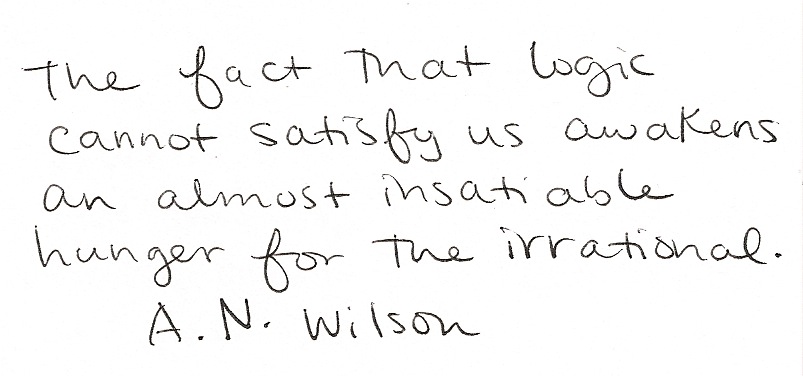 The fact that logic
cannot satisfy us awakens
an almost insatiable
hunger for the irrational.
A.N. Wilson